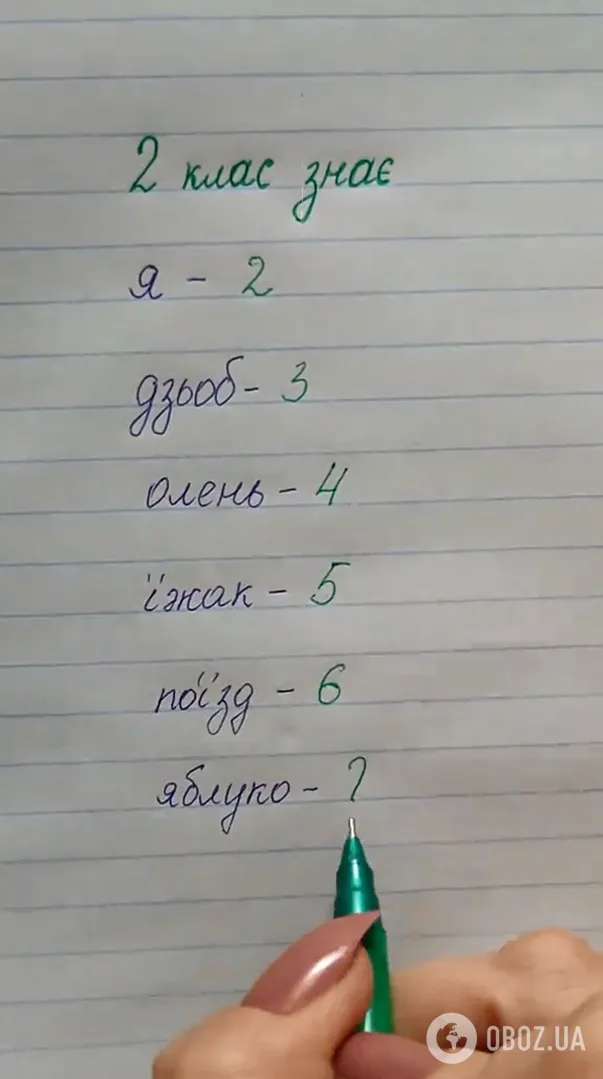 2 клас знає
я - 2
дзьоб - 3
олень - 4
їжак - 5
поїзд - 6
яблуко - ?
OBOZ.UA